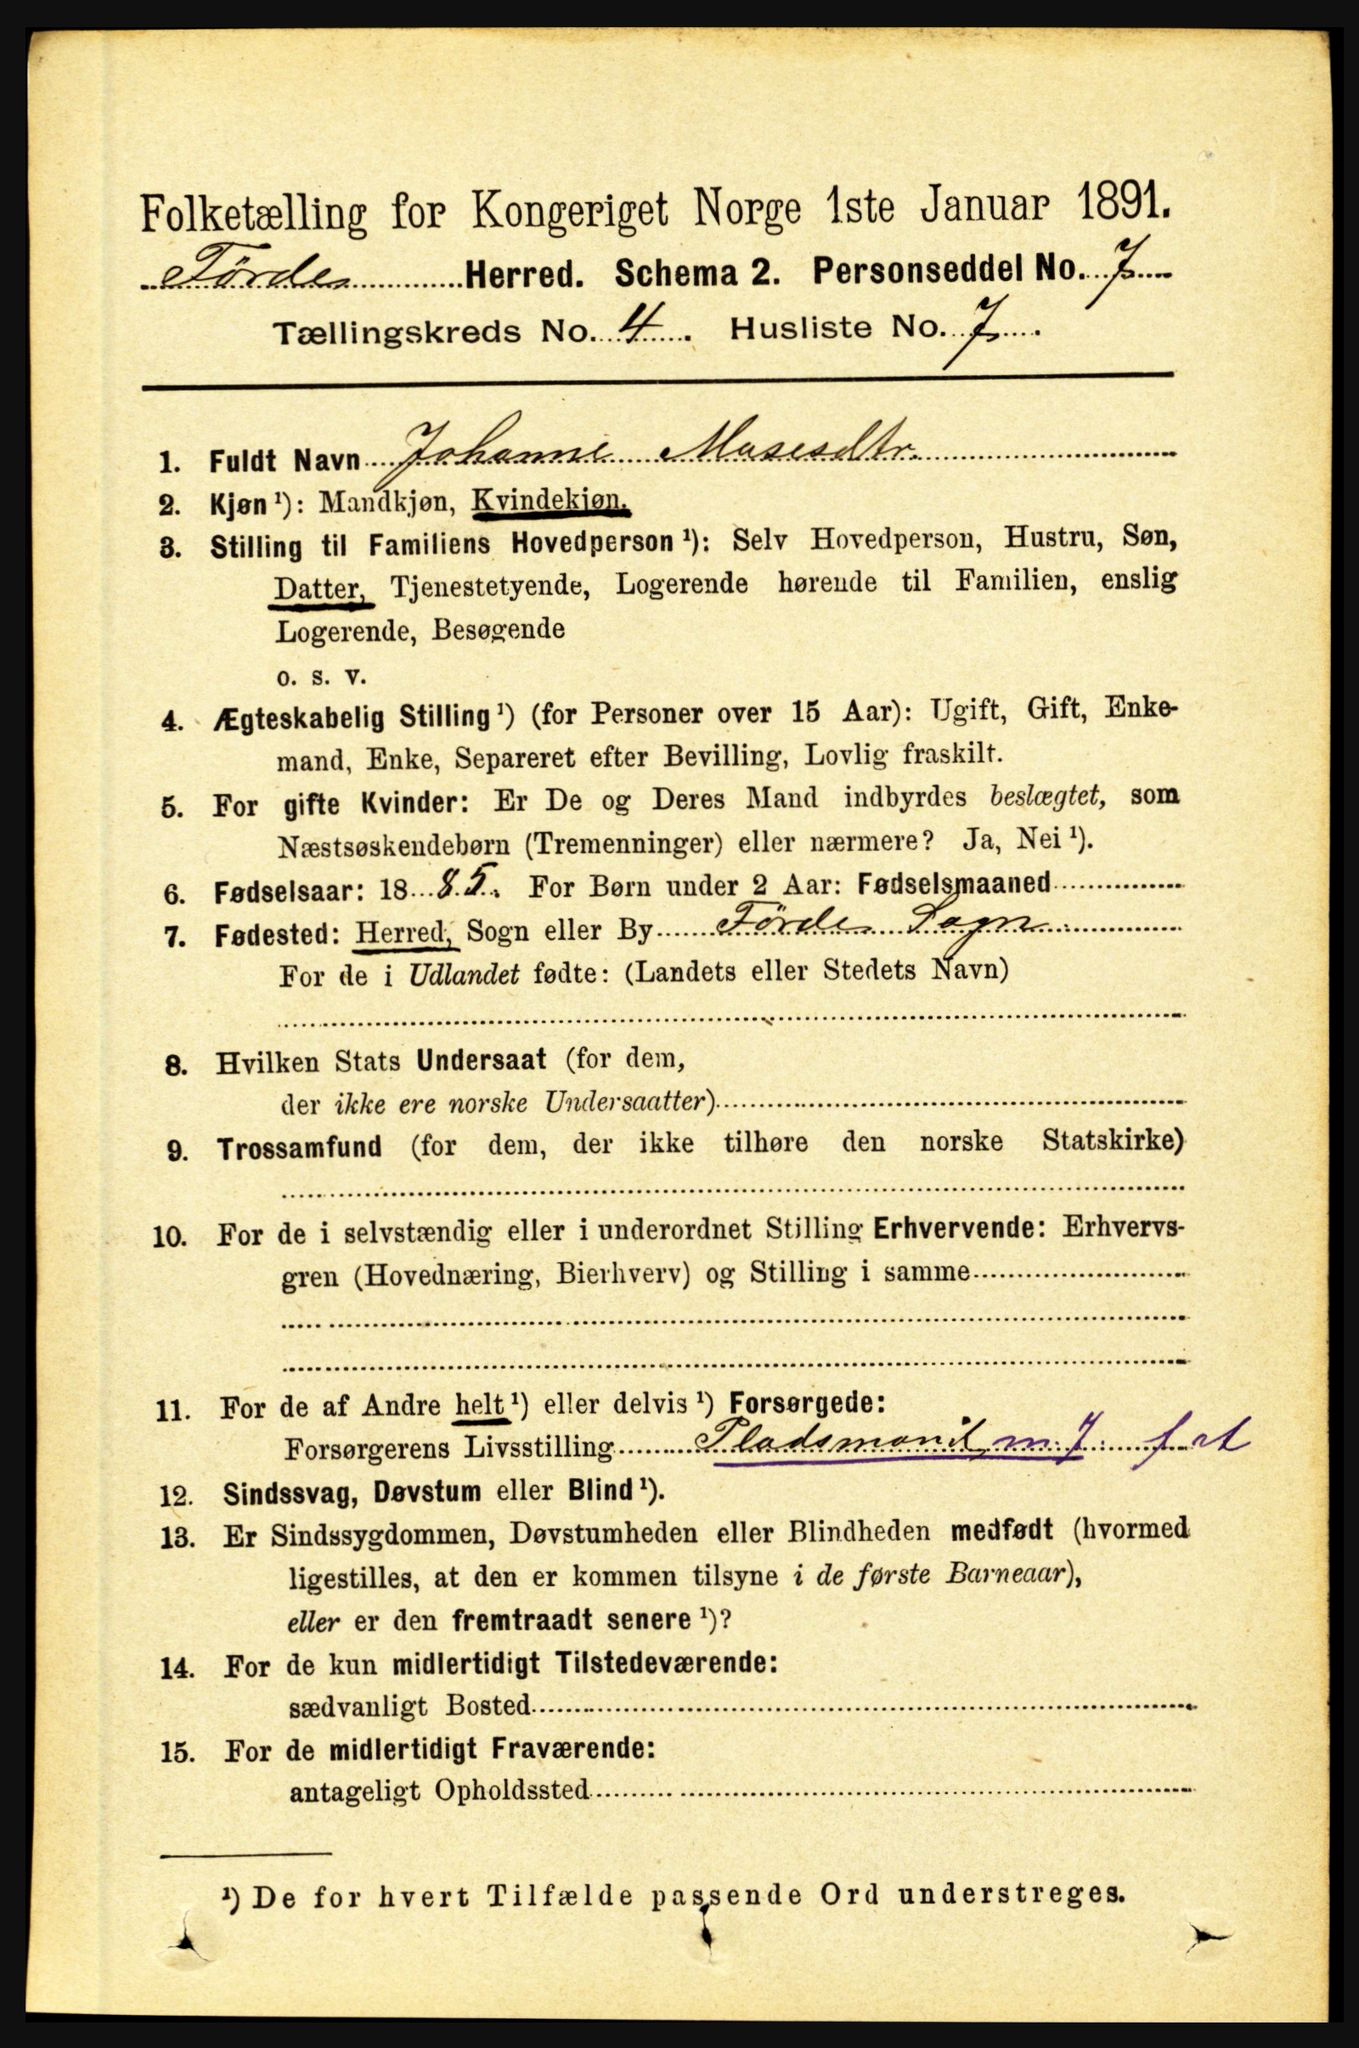 Folketælling for Kongeriget Norge 1ste Januar 1891.
Førde Herred. Schema 2. Personseddel No. 7
Tællingskreds No. 4. Husliste No. 7.
1. Fuldt Navn Johanne Mosesdtr.
2. Kjøn¹): Mandkjøn, Kvindekjøn.
3. Stilling til Familiens Hovedperson¹): Selv Hovedperson, Hustru, Søn,
Datter, Tjenestetyende, Logerende hørende til Familien, enslig
Logerende, Besøgende
o. s. v.
4. Ægteskabelig Stilling¹) (for Personer over 15 Aar): Ugift, Gift, Enke-
mand, Enke, Separeret efter Bevilling, Lovlig fraskilt.
5. For gifte Kvinder: Er De og Deres Mand indbyrdes beslægtet, som
Næstsøskendebørn (Tremenninger) eller nærmere? Ja, Nei¹).
6. Fødselsaar: 1885. For Børn under 2 Aar: Fødselsmaaned
7. Fødested: Herred, Sogn eller By Førde Sogn
For de i Udlandet fødte: (Landets eller Stedets Navn)
8. Hvilken Stats Undersaat (for dem,
der ikke ere norske Undersaatter)
9. Trossamfund (for dem, der ikke tilhøre den norske Statskirke)
10. For de i selvstændig eller i underordnet Stilling Erhvervende: Erhvervs-
gren (Hovednæring, Bierhverv) og Stilling i samme
11. For de af Andre helt¹) eller delvis¹) Forsørgede:
Forsørgerens Livsstilling Pladsmand m. J.
12. Sindssvag, Døvstum eller Blind¹).
13. Er Sindssygdommen, Døvstumheden eller Blindheden medfødt (hvormed
ligestilles, at den er kommen tilsyne i de første Barneaar),
eller er den fremtraadt senere¹)?
14. For de kun midlertidigt Tilstedeværende:
sædvanligt Bosted
15. For de midlertidigt Fraværende:
antageligt Opholdssted
¹) De for hvert Tilfælde passende Ord understreges.